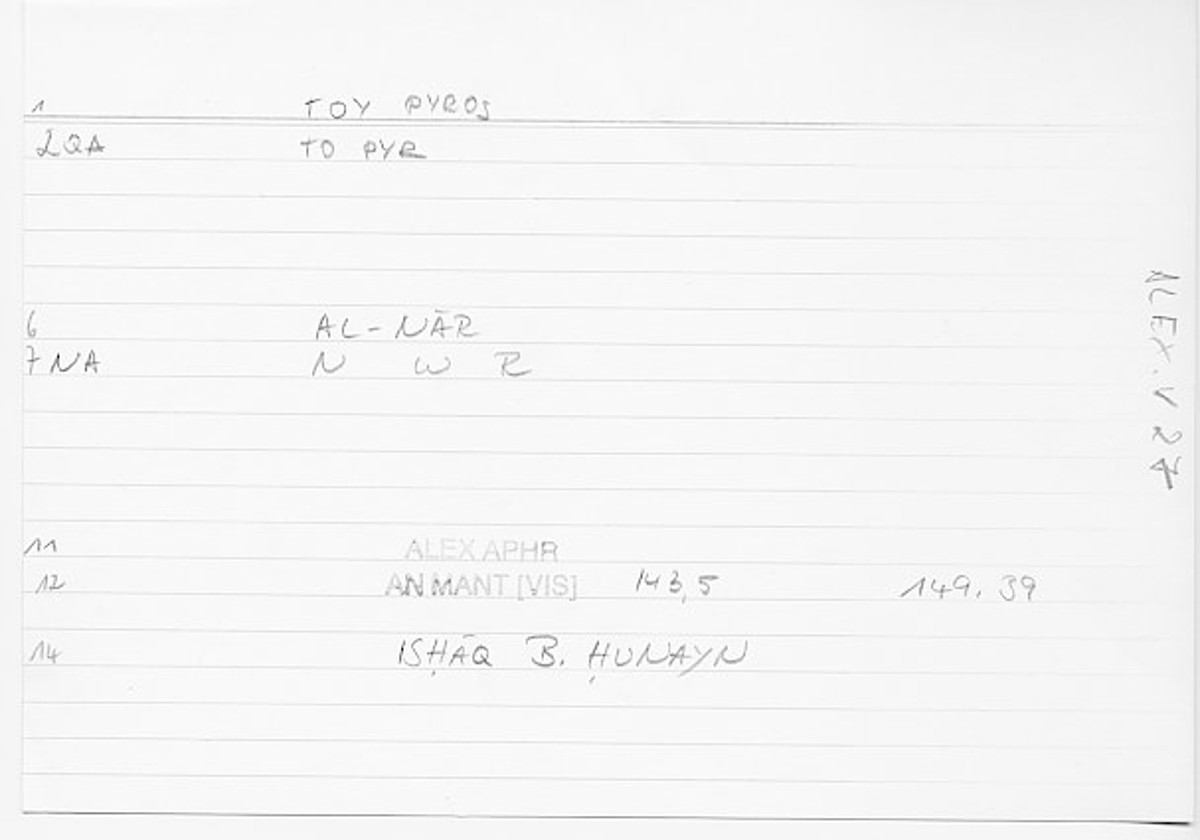 1 TOY PYROS
2QA TO PYR
6 AL-NĀR
7NA N W R
11 ALEX APHR
12 AN MANT [VIS] 143,5 149.39
14 ISḤĀQ B. ḤUNAYN
ALEX.V 27